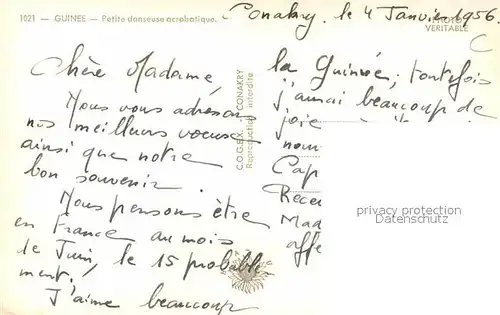 1021 — GUINEE — Petite danseuse acrobatique.
Conakry, le 4 Janvier 1956.
PHOTO
VERITABLE
C
Chère Madame,
Nous vous adressons
nos meilleurs voeux
ainsi que notre
bon souvenir.
Nous pensons être
en France au mois
de Juin, le 15 probable
ment.
J'aime beaucoup
C.O.G.E.X. CONAKRY
Reproduction interdite
la Guinée, toutefois
j'aurai beaucoup de
joie
nom
Cap
Recev
Mad
affe
privacy protection
Datenschutz